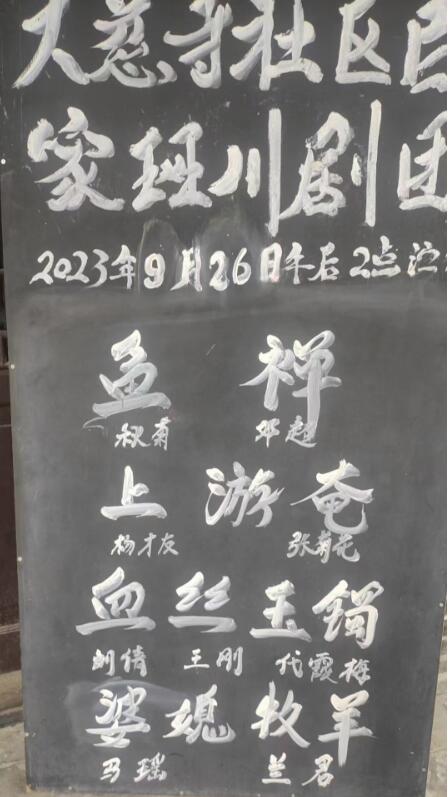 大慈寺社区
家班川剧团
2023年9月26日午后2点
鱼 禅
秋菊 邓超
上 游 奄
杨才友 张菊花
血丝玉镯
刘倩 王刚 代霞梅
婆媳牧羊
马瑶 兰君